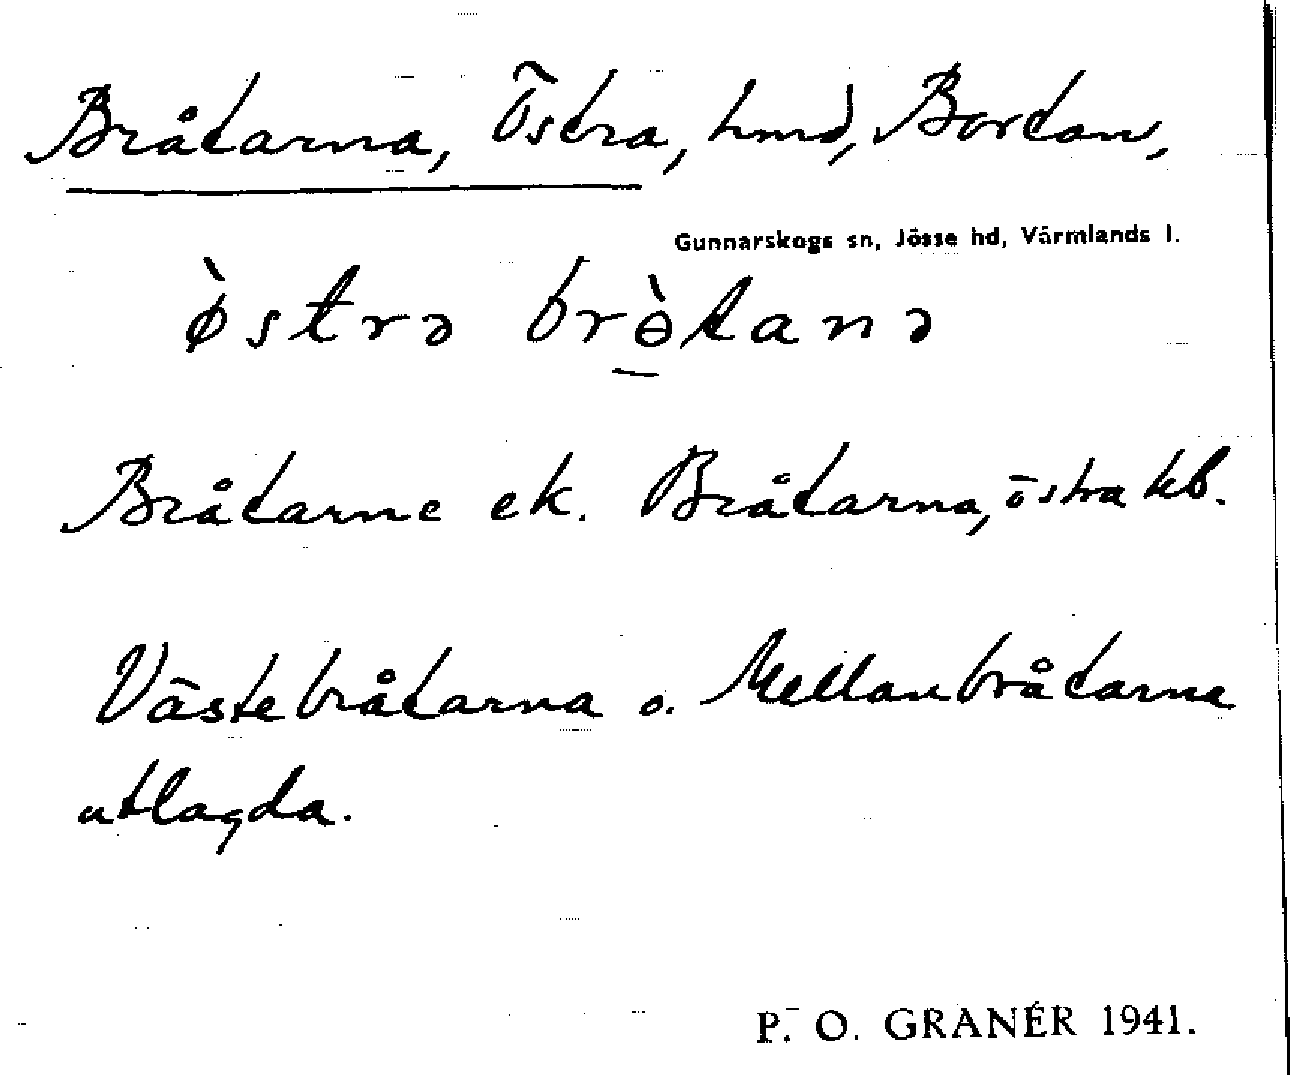 Bråtarna, Östra, hmd, Bortan,
Gunnarskogs sn, Jösse hd, Värmlands l.
ø̀strə brɵ̱̀tanə
Bråtarne ek. Bråtarna, östra kb.
Västebråtarna o. Mellanbråtarna
utlagda.
P. O. GRANÉR 1941.